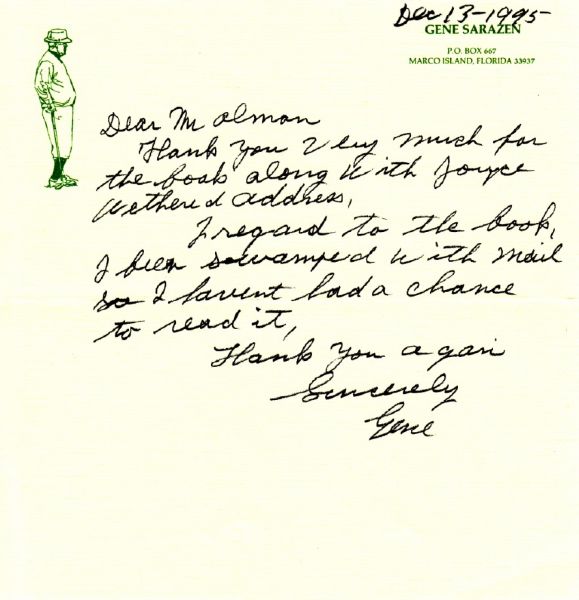 Dec 13-1995
GENE SARAZEN
P.O. BOX 667
MARCO ISLAND, FLORIDA 33937
Dear Mr Olman
Thank you Very much for
the book along with Joyce
Wethered address,
I regard to the book,
I been swamped with mail
so I havent had a chance
to read it,
Thank you again
Sincerely
Gene